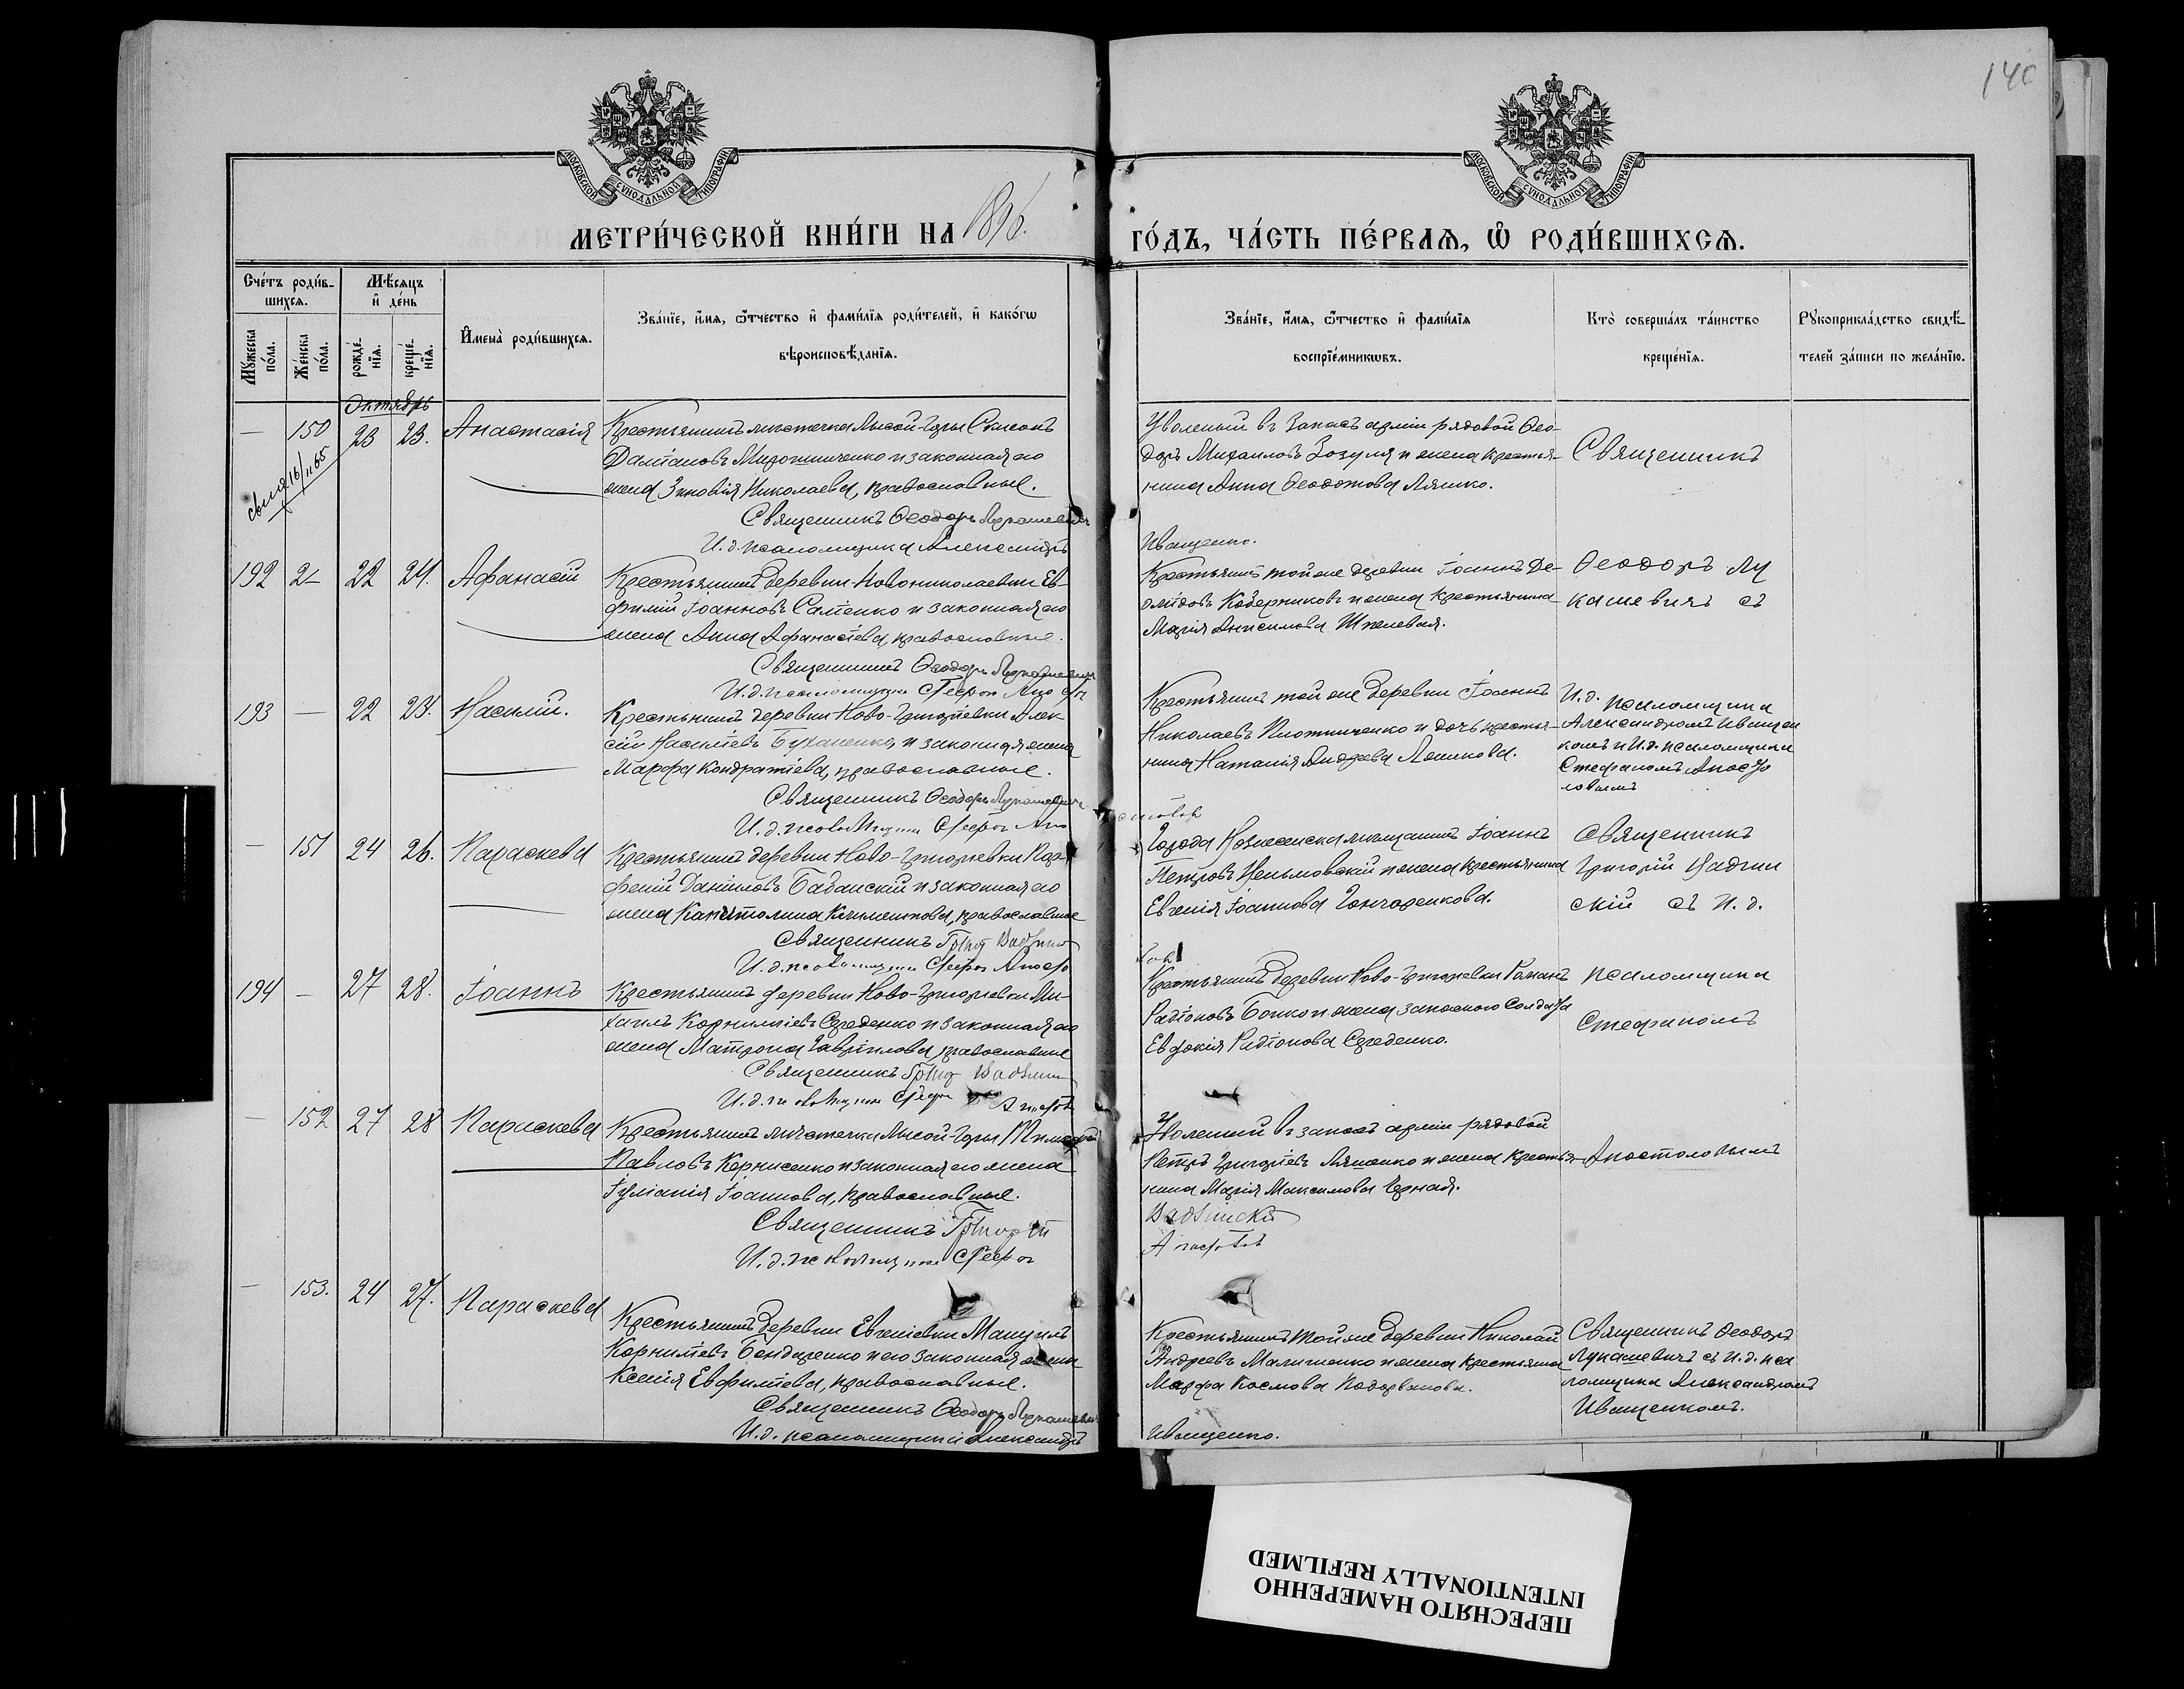 140
МОСКОВСКОЙ СУНОДАЛЬНОЙ ТИПОГРАФІИ
МОСКОВСКОЙ СУНОДАЛЬНОЙ ТИПОГРАФІИ
МЕТРИ́ЧЕСКОЙ КНИ́ГИ НА 1896.
ГО́ДЪ, ЧА́СТЬ ПЕ́РВАѦ, Ѡ РОДИ́ВШИХСѦ.
Сче́тъ роди́в-
шихсѧ.
Му́жеска по́ла.
Же́нска по́ла.
Мѣ́сѧцъ
и де́нь
рожде́-
нїѧ.
креще́-
нїѧ.
И҆мена̀ роди́вшихсѧ.
Зва́нїе, и҆́мѧ, ѻ҆́тчество и҆ фами́лїѧ роди́телей, и҆ како́гѡ
вѣроисповѣ́данїѧ.
Зва́нїе, и҆́мѧ, ѻ҆́тчество и҆ фами́лїѧ
воспрїе́мникѡвъ.
Кто̀ соверша́лъ та́инство
креще́нїѧ.
Рꙋкоприкла́дство свидѣ́-
телей за́писи по жела́нїю.
Октябрь
— 150 23 23. Анастасія
Крестьянинъ мѣстечка Лысой-Горы Симеонъ
Даміановъ Мирошниченко и законная его
жена Зиновія Николаева, православные.
Священникъ Ѳеодоръ Лукашевичъ
И. д. псаломщика Александръ
Уволеный въ запасъ арміи рядовой Ѳео-
доръ Михаиловъ Зозуля и жена крестья-
нина Анна Ѳеодотова Ляшко.
Иващенко.
Священникъ
192 2– 22 24. Афанасій
Крестьянинъ деревни Новониколаевки Ев-
фимій Іоанновъ Саленко и законная его
жена Анна Афанасіева, православные.
Священникъ Ѳеодоръ Лукашевичъ
И. д. псаломщика Стефанъ Апо
Крестьянинъ той же деревни Іоаннъ
Коверниковъ и жена крестьянина
Марія Анисимова Шпелевая.
Ѳеодоръ Лу
кашевичъ съ
193 — 22 23. Василій.
Крестьянинъ деревни Ново-Григорьевки Алек-
сій Василіевъ Буханенко, и законная жена
Марфа Кондратіева, православные.
Священникъ Ѳеодоръ Лукашевичъ
И. д. псаломщика Стефанъ Апо
Крестьянинъ той же деревни Іоаннъ
Николаевъ Плотниченко и дочь крестья-
нина Наталія Андреева
столовъ
И. д. псаломщика
Александромъ Иващен
комъ и И. д. псаломщика
Стефаномъ Апосто
ловымъ
— 151 24 26. Параскева
Крестьянинъ деревни Ново-Григорьевки Пар-
феній Даніиловъ Бабанскій и законная его
жена Капитолина Климентова, православные
Священникъ Григ Вадзинс
И. д. псаломщика Стефанъ Апосто
Города Вознесенска мѣщанинъ Іоаннъ
Петровъ и жена крестьянина
Евгенія Іоаннова Гончаренкова.
ловъ
Священникъ
Григорій Вадзин
скій съ И. д.
194 — 27 28. Іоаннъ
Крестьянинъ деревни Ново-Григорьевки Ми-
хаилъ Корниліевъ Середенко и законная его
жена Матрона Гавріилова, православные
Священникъ Григ Вадзин
И. д. псаломщика Стефан Апостол
Крестьянинъ деревни Ново-Григорьевки Романъ
Радіоновъ Бойко и жена запаснаго солдата
Евдокія Радіонова Середенко.
псаломщика
Стефаномъ
— 152 27 28 Параскева
Крестьянинъ мѣстечка Лысой-Горы Тимофей
Павловъ Корнисенко и законная его жена
Іуліанія Іоаннова, православные.
Священникъ Григорій
И. д. псаломщика Стефан
Уволеный въ запасъ арміи рядовой
Петръ Григоріевъ Ляшенко и жена крестья-
нина Марія Максимова Черная.
Вадзинскій
Апостоловъ
Апостоловымъ
— 153. 24 27. Параскева
Крестьянинъ деревни Евгеніевки Мануилъ
Корниліевъ Бондаренко и его законная жена
Ксенія Евфиміева, православные.
Священникъ Ѳеодоръ Лукашевичъ
И. д. псаломщика Александръ
Крестьянинъ той же деревни Николай
Андреевъ Малишенко и жена крестьянина
Марфа Космова
Иващенко.
Священникъ Ѳеодоръ
Лукашевичъ съ И. д. пса
ломщика Александромъ
Иващенкомъ.
ПЕРЕСНЯТО НАМЕРЕННО
INTENTIONALLY REFILMED